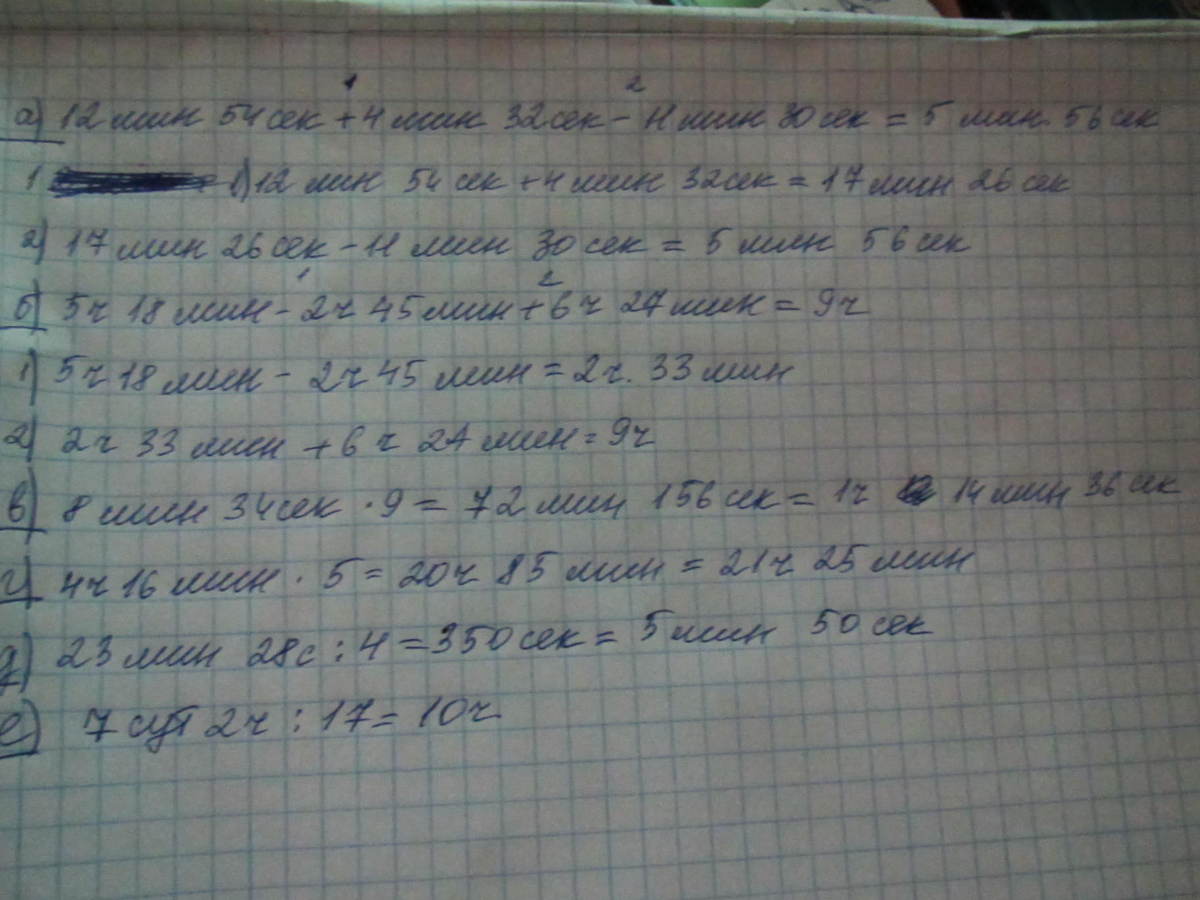 1 2
а) 12 мин 54 сек + 4 мин 32 сек - 11 мин 30 сек = 5 мин. 56 сек
1 1) 12 мин 54 сек + 4 мин 32 сек = 17 мин 26 сек
2) 17 мин 26 сек - 11 мин 30 сек = 5 мин 56 сек
1 2
б) 5ч 18 мин - 2ч 45 мин + 6ч 27 мин = 9ч
1) 5ч 18 мин - 2ч 45 мин = 2ч. 33 мин
2) 2ч 33 мин + 6ч 27 мин = 9ч
в) 8 мин 34 сек · 9 = 72 мин 156 сек = 1ч 14 мин 36 сек
г) 4ч 16 мин · 5 = 20ч 85 мин = 21ч 25 мин
д) 23 мин 28с : 4 = 350 сек = 5 мин 50 сек
е) 7 сут 2ч : 17 = 10ч